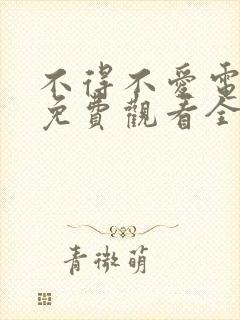 不得不愛電
免費觀看全
青微萌